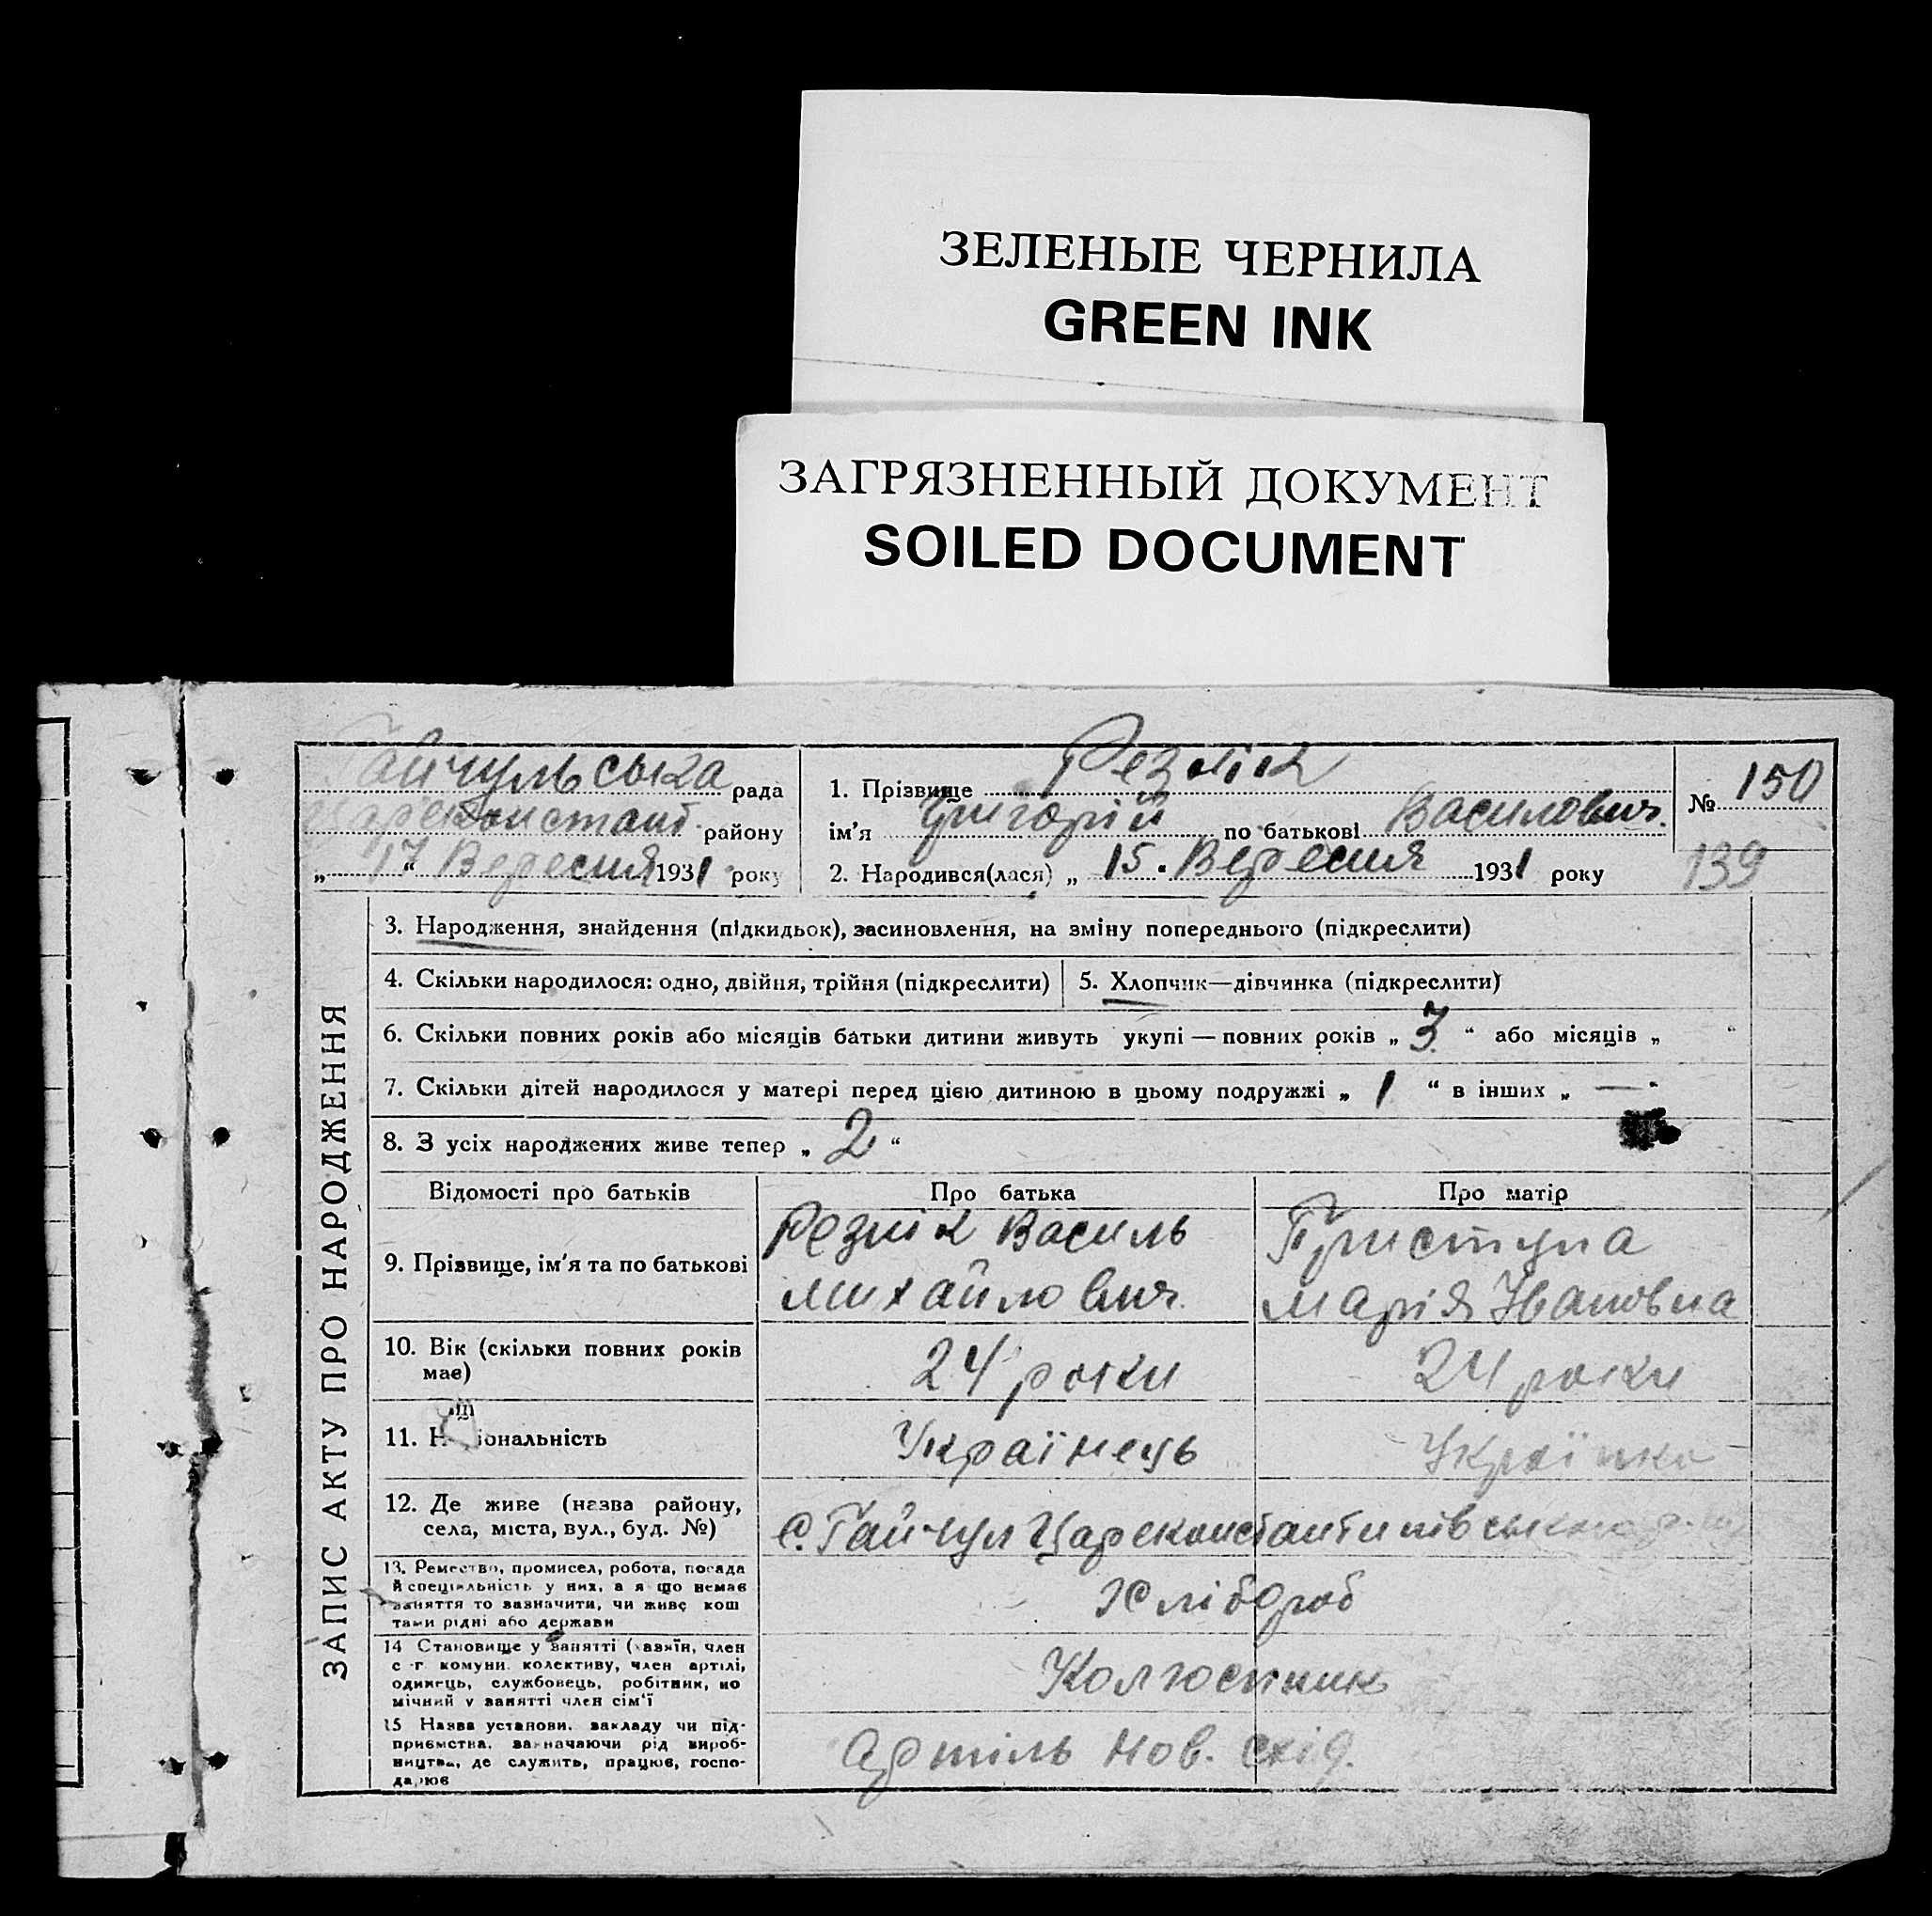 ЗЕЛЕНЫЕ ЧЕРНИЛА
GREEN INK
ЗАГРЯЗНЕННЫЙ ДОКУМЕНТ
SOILED DOCUMENT
Гайчульська рада
Цареконстант. району
„ 17 “ Вересня 1931 року
1. Прізвище Резнік
ім’я Григорій по батькові Василович.
2. Народився(лася) „ 15. Вересня 1931 року
№ 150
139
ЗАПИС АКТУ ПРО НАРОДЖЕННЯ
3. Народження, знайдення (підкидьок), засиновлення, на зміну попереднього (підкреслити)
4. Скільки народилося: одно, двійня, трійня (підкреслити) 5. Хлопчик—дівчинка (підкреслити)
6. Скільки повних років або місяців батьки дитини живуть укупі — повних років „ 3 “ або місяців „ “
7. Скільки дітей народилося у матері перед цією дитиною в цьому подружжі „ 1 “ в інших „ — “
8. З усіх народжених живе тепер „ 2 “
Відомості про батьків Про батька Про матір
9. Прізвище, ім’я та по батькові
Резнік Василь
Михайлович.
Приступа
Марія Івановна
10. Вік (скільки повних років
має)
24 роки
24 роки
11. Національність
Українець
Українка
12. Де живе (назва району,
села, міста, вул., буд. №)
с. Гайчул Цареконстантинівського
13. Ремество, промисел, робота, посада
й спеціяльність у них, а якщо немає
заняття то зазначити, чи живе кош
тами рідні або держави
Хлібороб
14 Становище у занятті (хазяїн, член
с-г комуни, колективу, член артілі,
одинець, службовець, робітник, по
мічний у занятті член сім'ї
Колгоспник
15 Назва установи, закладу чи під-
приємства, зазначаючи рід вироб-
ництва, де служить, працює, госпо-
дарює
Артіль Нов. схід.